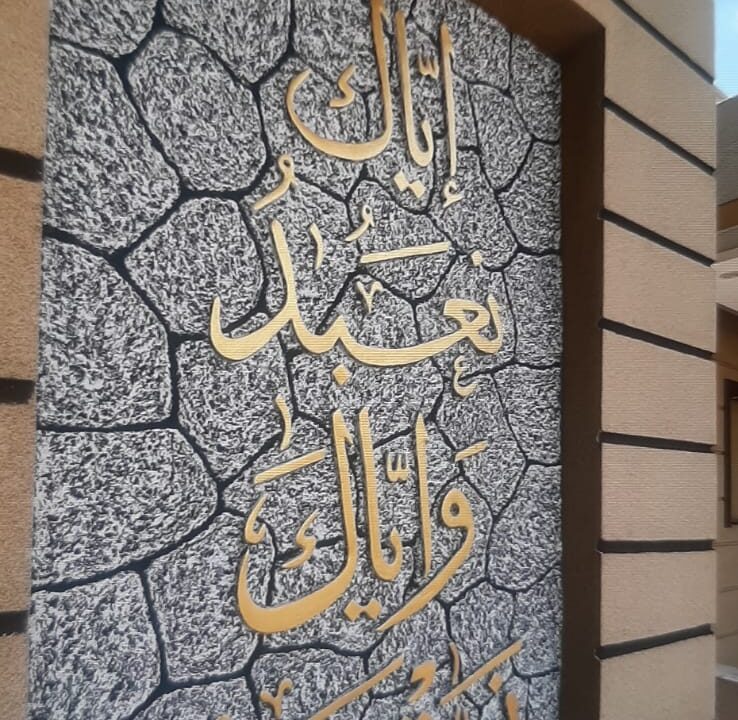 إيّاك
نعَبدُ
وَايّاكَ